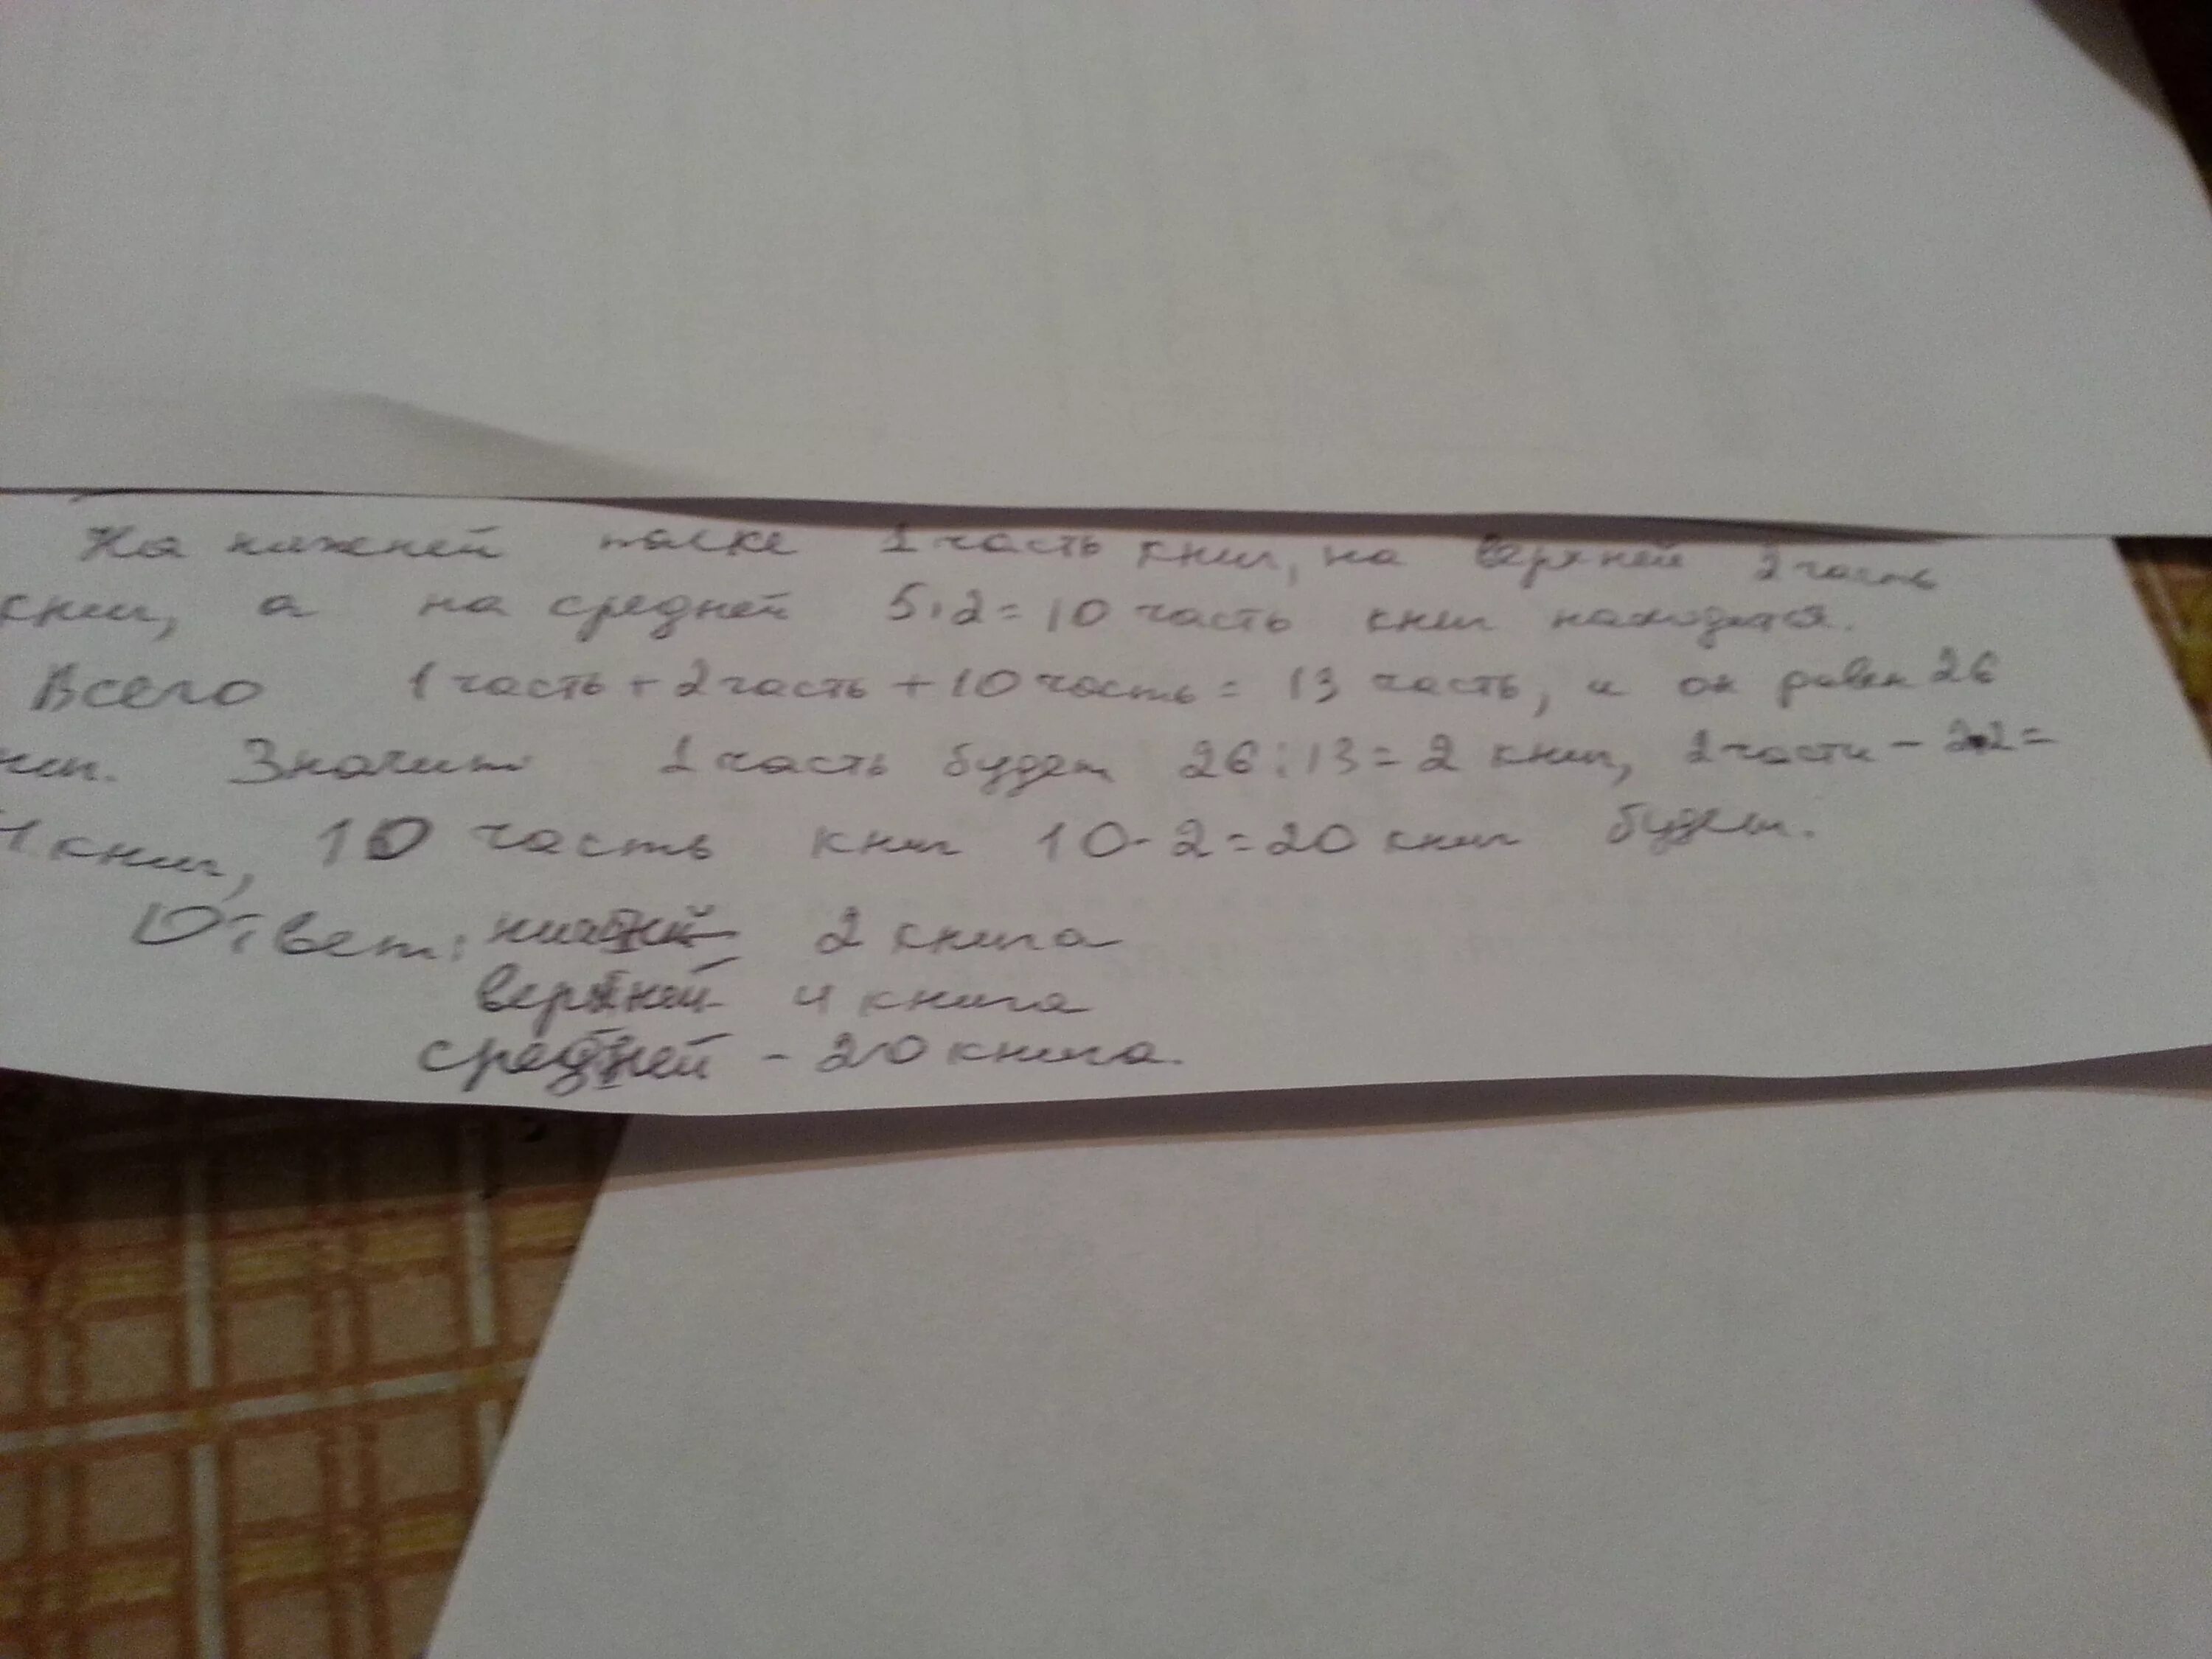 На нижней полке 1 часть книг, на верхней 2 часть
книг, а на средней 5·2=10 часть книг находятся.
Всего 1 часть + 2 часть + 10 часть = 13 часть, и он равен 26
книг. Значит 1 часть будет 26:13=2 книг, 2 части – 2·2=
4 книг, 10 часть книг 10·2=20 книг будет.
Ответ: нижней 2 книга
верхней 4 книга
средней – 20 книга.